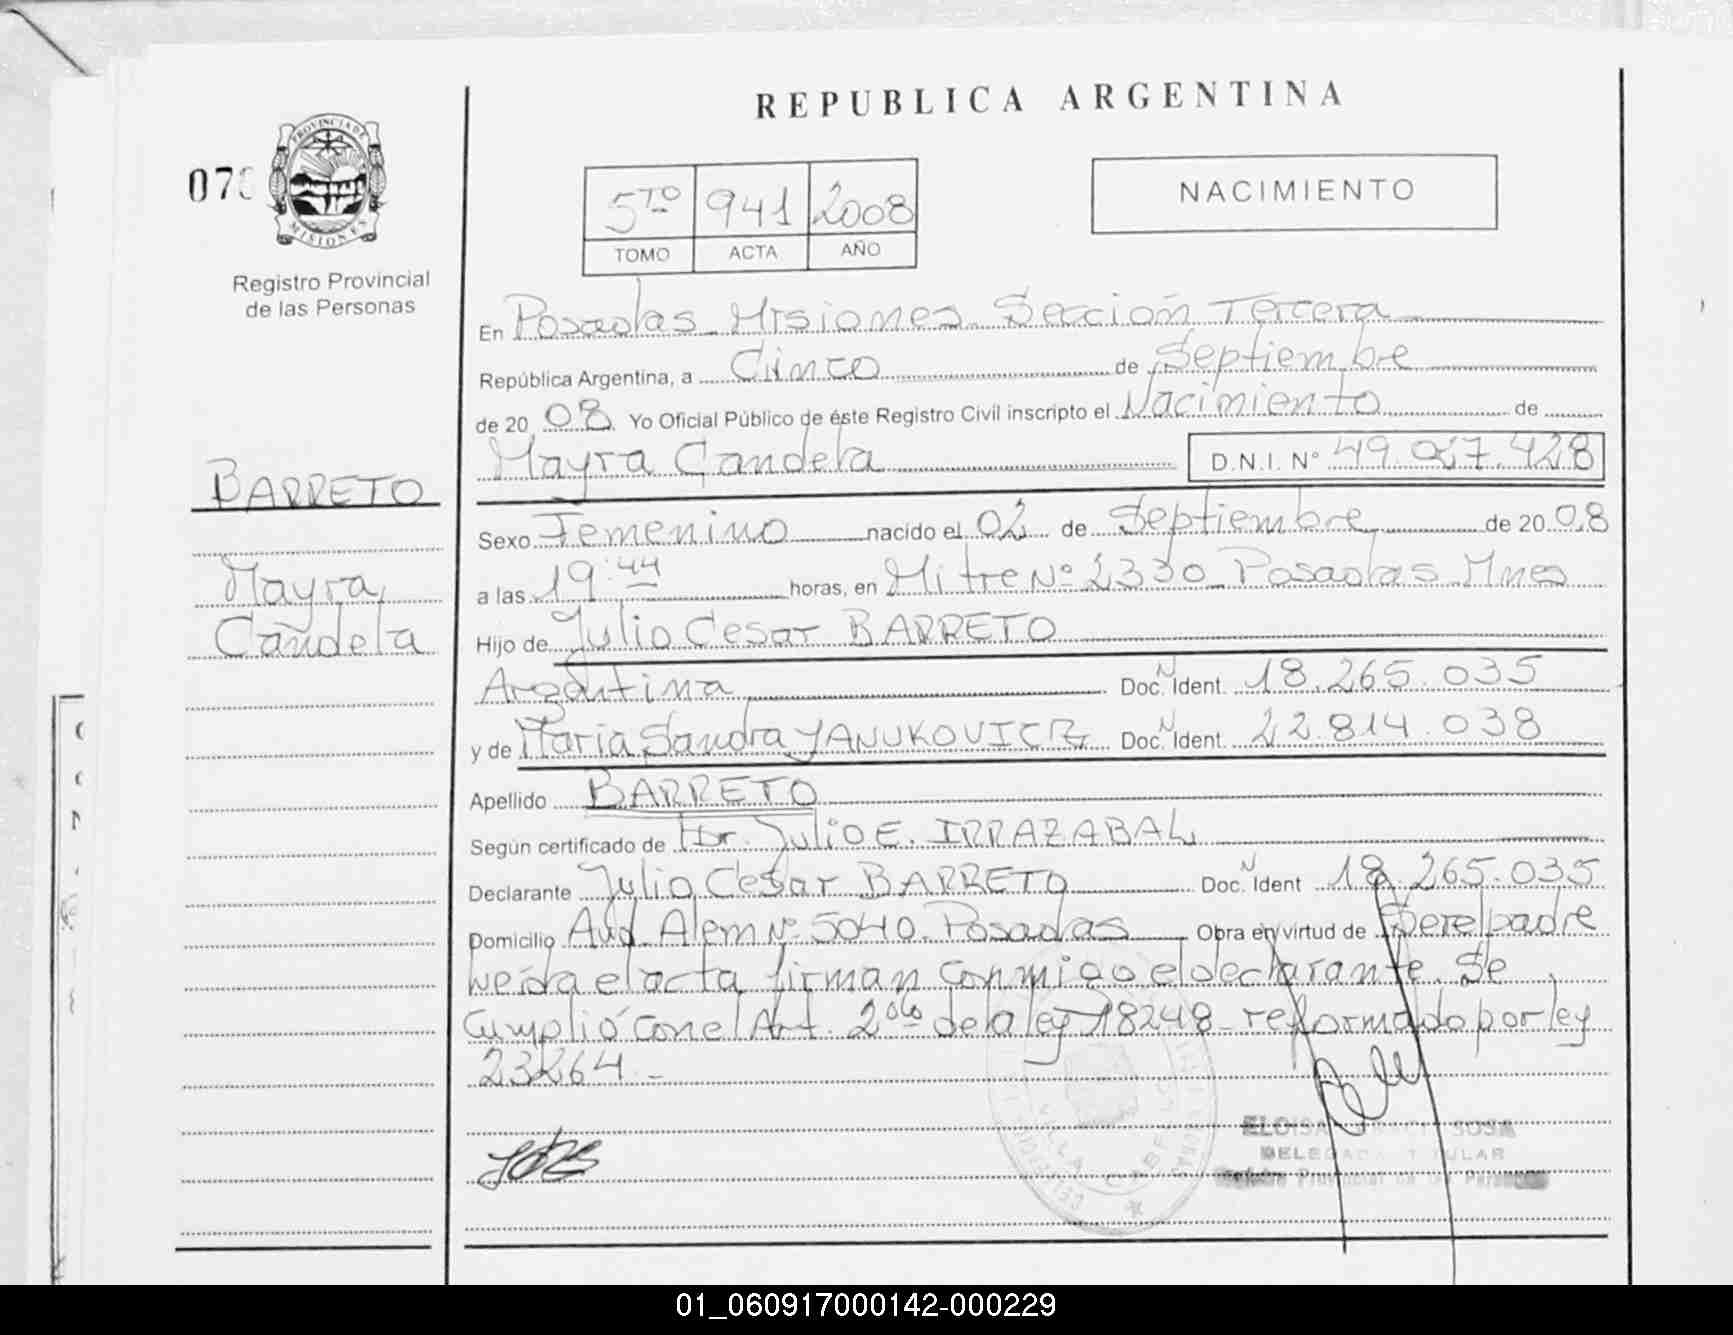 REPUBLICA ARGENTINA
PROVINCIA DE
MISIONES
07
Registro Provincial
de las Personas
5TO 941 2008
TOMO ACTA AÑO
NACIMIENTO
En Posadas Misiones. Sección Tercera
República Argentina, a Cinco de Septiembre
de 20 08 Yo Oficial Público de éste Registro Civil inscripto el Nacimiento de
Mayra Candela D.N.I. N° 49.047.428
BARRETO
Mayra
Candela
Sexo Femenino nacido el 02 de Septiembre de 20 08
a las 19:44 horas, en Mitre Nº 2330 Posadas Mnes
Hijo de Julio Cesar BARRETO
Argentina Doc. N Ident. 18.265.035
y de Maria Sandra YANUKOVICZ Doc. N Ident. 22.814.038
Apellido BARRETO
Según certificado de Dr. Julio E. IRRAZABAL
Declarante Julio Cesar BARRETO Doc. N Ident 18.265.035
Domicilio Avd. Alem Nº 5040. Posadas Obra en virtud de Ser el padre
Leída el acta firman conmigo el declarante. Se
Cumplió con el Art. 2do de la ley 18248 reformado por ley
23264.-
ELOISA SOSA
DELEGADA TITULAR
Registro Provincial de las Personas
01_060917000142-000229